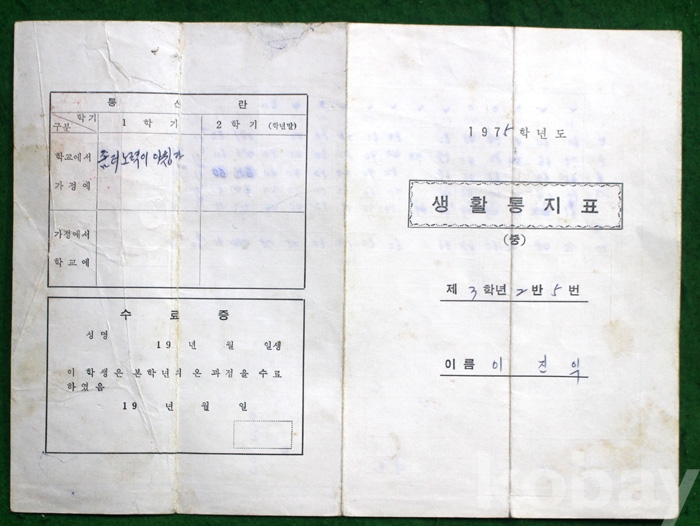 통 신 란
학기
구분
1 학 기
2 학 기 (학년말)
학교에서
가 정 에
좀 더 노력이 아쉽다
가정에서
학 교 에
수 료 증
성 명
19 년 월 일생
이 학생은 본학년의 온 과정을 수료
하였음
19 년 월 일
1975학년도
생활통지표
(중)
제 3 학년 2 반 5 번
이 름 이 진 억
kobay